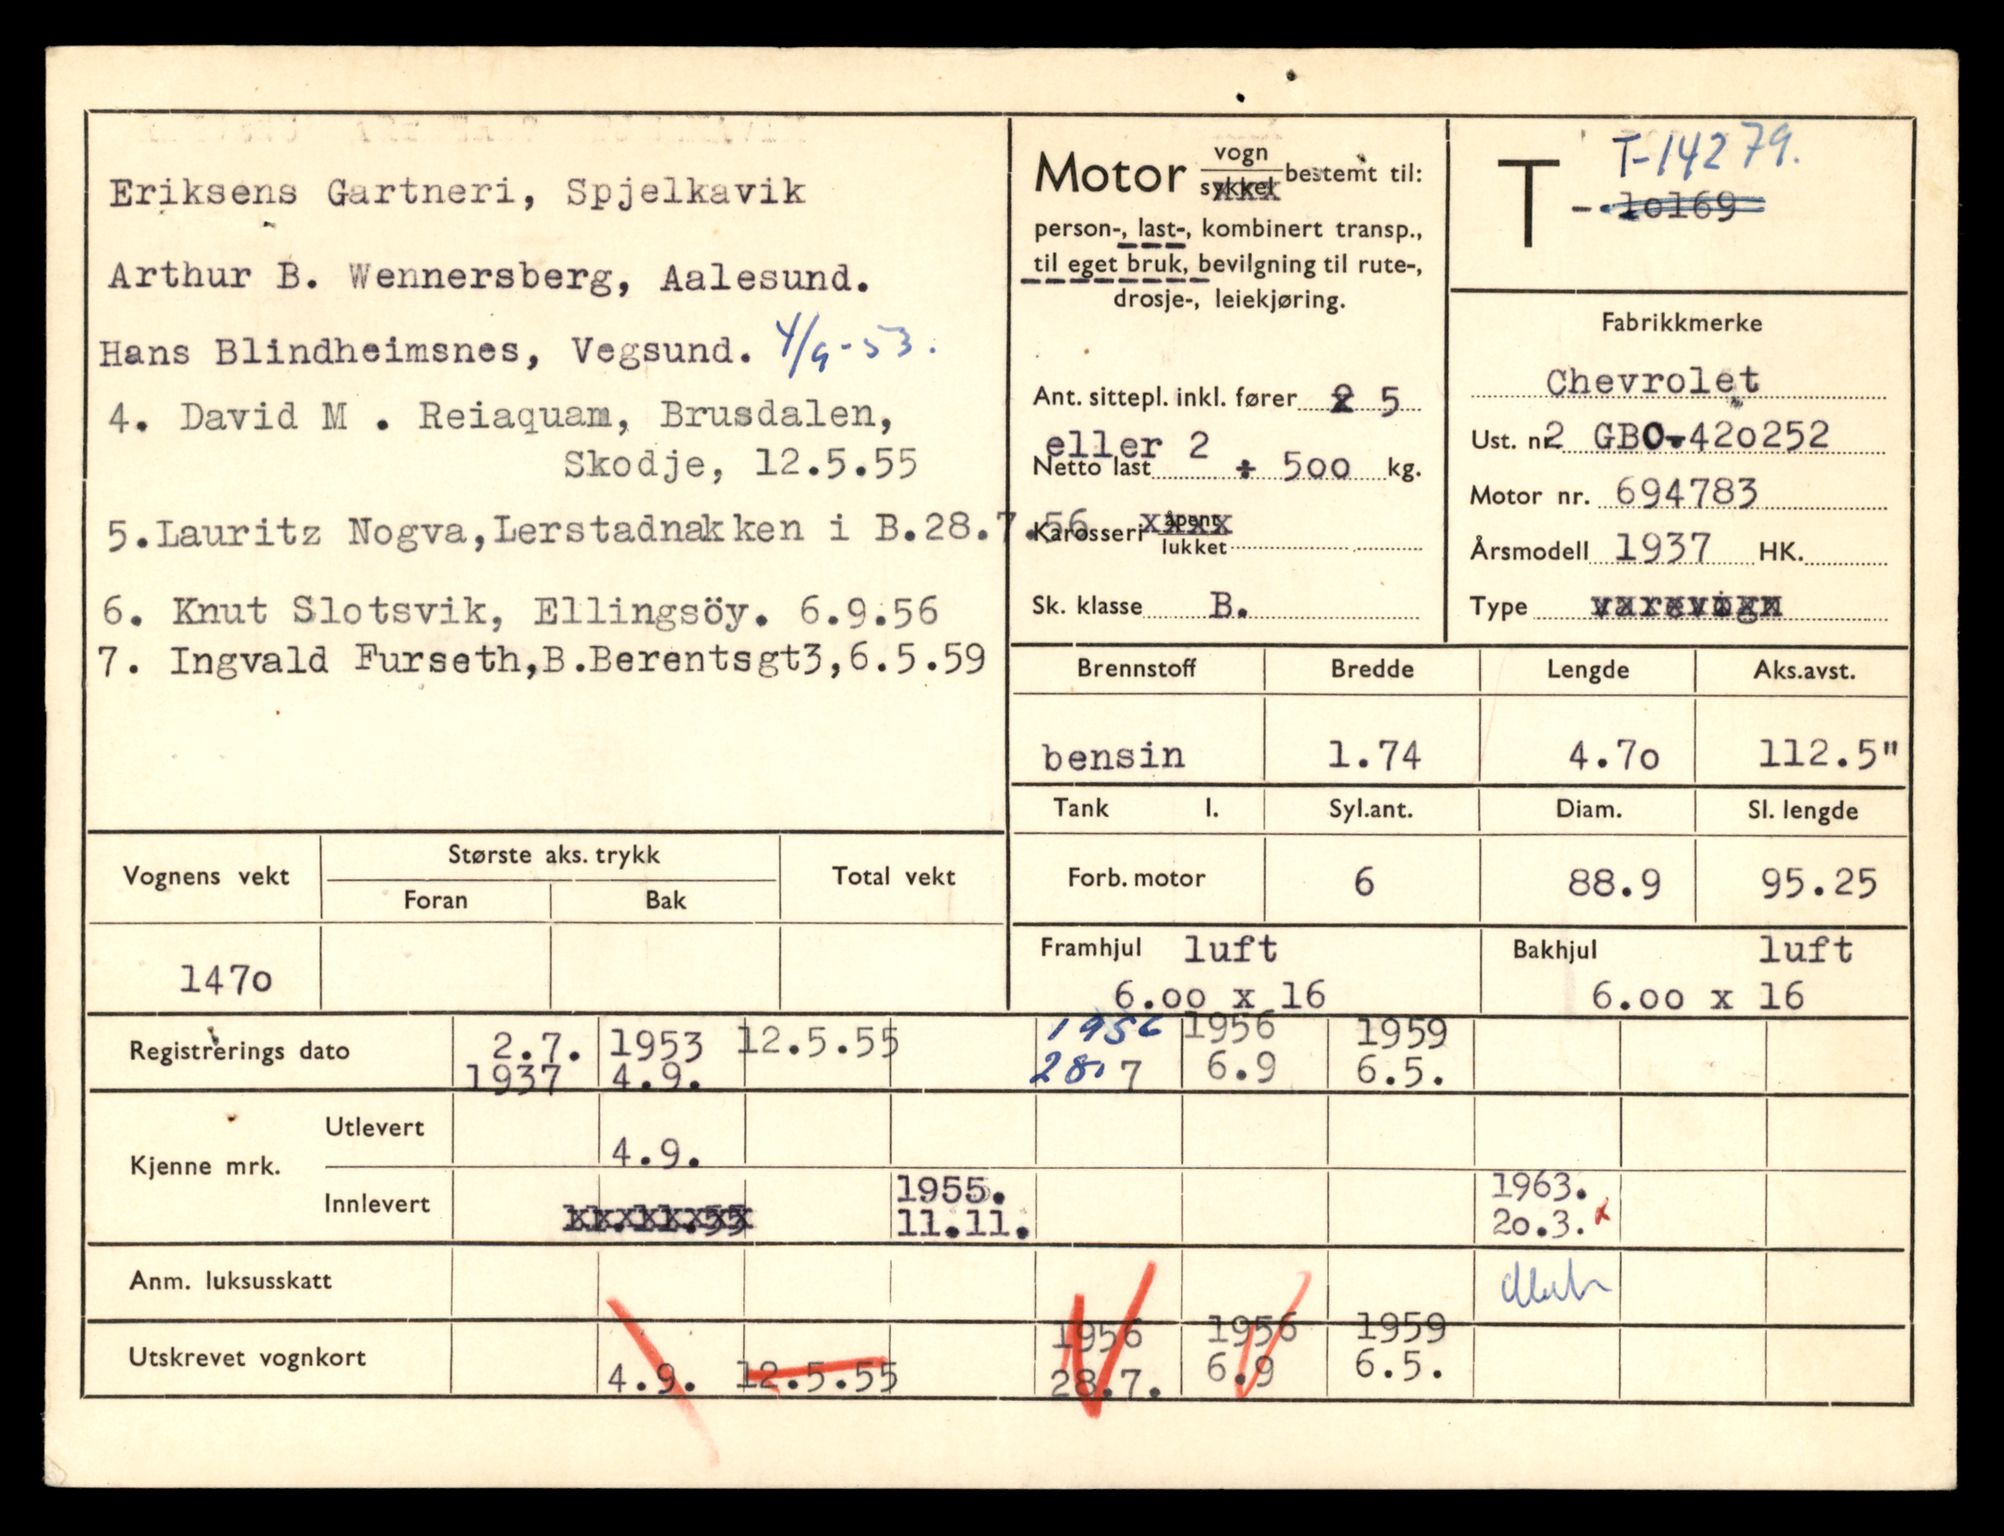 Eriksens Gartneri, Spjelkavik
Arthur B. Wennersberg, Aalesund.
Hans Blindheimsnes, Vegsund. 4/9-53.
4. David M . Reiaquam, Brusdalen,
Skodje, 12.5.55
5.Lauritz Nogva,Lerstadnakken i B.28.7.56
6. Knut Slotsvik, Ellingsöy. 6.9.56
7. Ingvald Furseth,B.Berentsgt3,6.5.59
Motor vogn sykkel bestemt til:
person-, last-, kombinert transp.,
til eget bruk, bevilgning til rute-,
drosje-, leiekjøring.
Ant. sittepl. inkl. fører 2 5
eller 2
Netto last + 500 kg.
Karosseri åpent
lukket
Sk. klasse B.
T-14279.
T - 10169
Fabrikkmerke
Chevrolet
Ust. nr 2 GBO-420252
Motor nr. 694783
Årsmodell 1937 HK.
Type varevogn
Brennstoff Bredde Lengde Aks.avst.
bensin 1.74 4.70 112.5"
Tank l. Syl.ant. Diam. Sl. lengde
Forb. motor 6 88.9 95.25
Framhjul luft Bakhjul luft
6.00 x 16 6.00 x 16
Vognens vekt Største aks. trykk Total vekt
Foran Bak
1470
Registrerings dato 2.7. 1953 12.5.55 1956 1956 1959
1937 4.9. 28.7 6.9 6.5.
Kjenne mrk. Utlevert 4.9.
Innlevert 11.11.55 1955. 1963.
11.11. 20.3. x
Anm. luksusskatt
Utskrevet vognkort 1956 1956 1959
4.9. 12.5.55 28.7. 6.9 6.5.